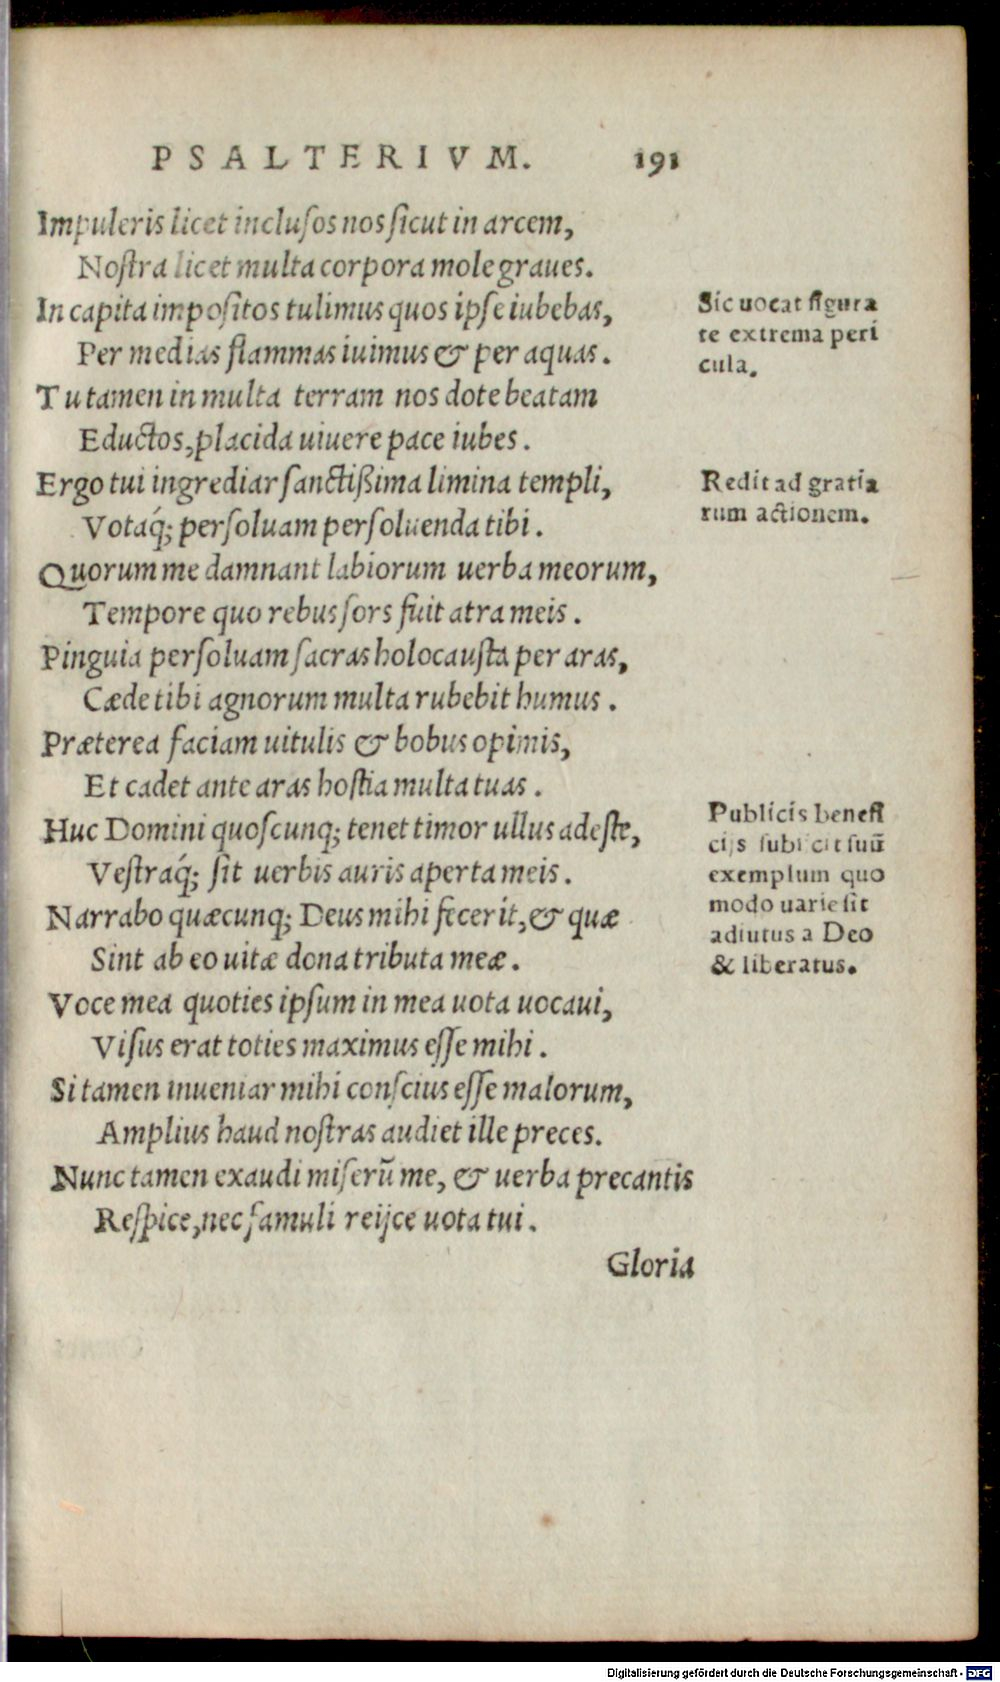 PSALTERIVM. 191
Impuleris licet inclusos nos sicut in arcem,
Nostra licet multa corpora mole graues.
In capita impositos tulimus quos ipse iubebas,
Per medias flammas iuimus & per aquas.
Tu tamen in multa terram nos dote beatam
Eductos, placida uiuere pace iubes.
Ergo tui ingrediar sanctißima limina templi,
Votaq́; persoluam persoluenda tibi.
Quorum me damnant labiorum uerba meorum,
Tempore quo rebus sors fuit atra meis.
Pinguia persoluam sacras holocausta per aras,
Cæde tibi agnorum multa rubebit humus.
Præterea faciam uitulis & bobus opimis,
Et cadet ante aras hostia multa tuas.
Huc Domini quoscunq; tenet timor ullus adeste,
Vestraq́; sit uerbis auris aperta meis.
Narrabo quæcunq; Deus mihi fecerit, & quæ
Sint ab eo uitæ dona tributa meæ.
Voce mea quoties ipsum in mea uota uocaui,
Visus erat toties maximus esse mihi.
Si tamen inueniar mihi conscius esse malorum,
Amplius haud nostras audiet ille preces.
Nunc tamen exaudi miserū me, & uerba precantis
Respice, nec famuli reijce uota tui.
Gloria
Sic uocat figura
te extrema peri
cula.
Redit ad gratia
rum actionem.
Publicis benefi
cijs subijcit suū
exemplum quo
modo uarie sit
adiutus a Deo
& liberatus.
Digitalisierung gefördert durch die Deutsche Forschungsgemeinschaft - DFG